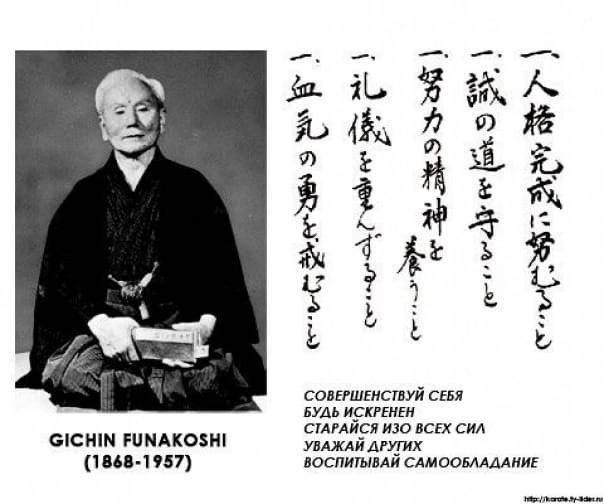 一、人格完成に努むること
一、誠の道を守ること
一、努力の精神を養うこと
一、礼儀を重んずること
一、血気の勇を戒むること
СОВЕРШЕНСТВУЙ СЕБЯ
БУДЬ ИСКРЕНЕН
СТАРАЙСЯ ИЗО ВСЕХ СИЛ
УВАЖАЙ ДРУГИХ
ВОСПИТЫВАЙ САМООБЛАДАНИЕ
GICHIN FUNAKOSHI
(1868-1957)
http://karate.ty-lider.ru